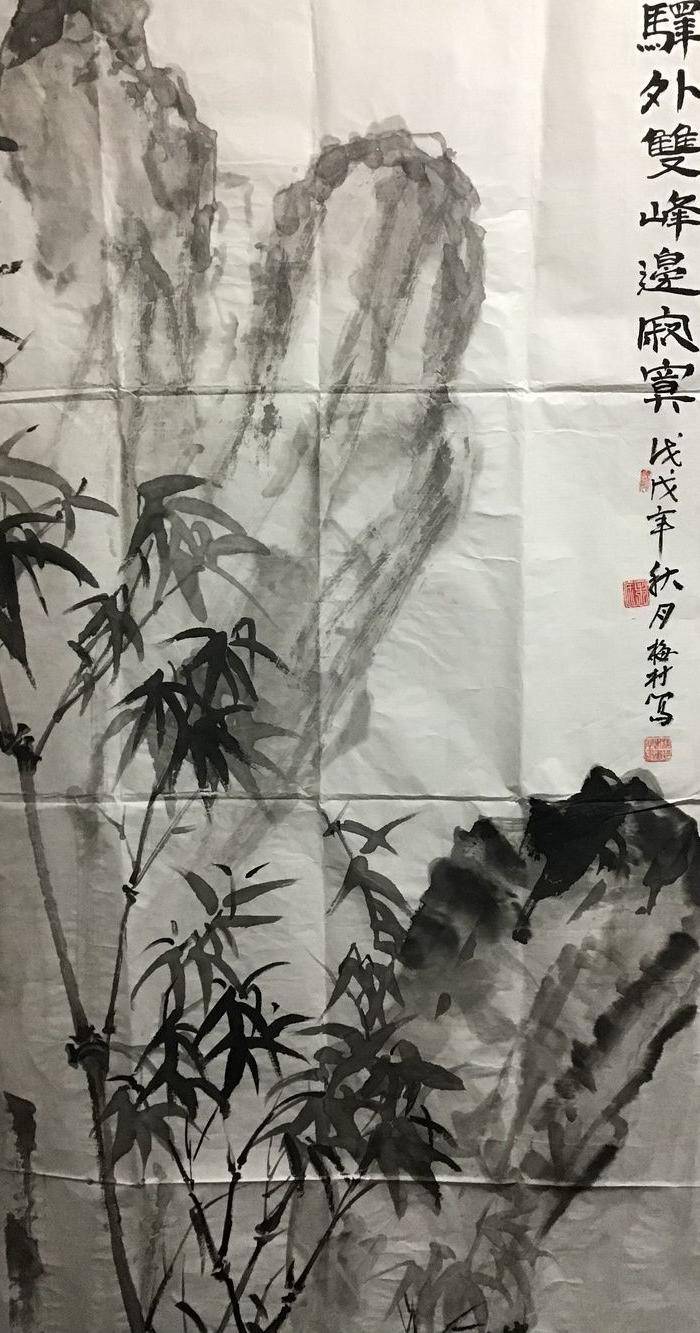 驛外雙峰邊寂寞戊戌年秋月梅村写